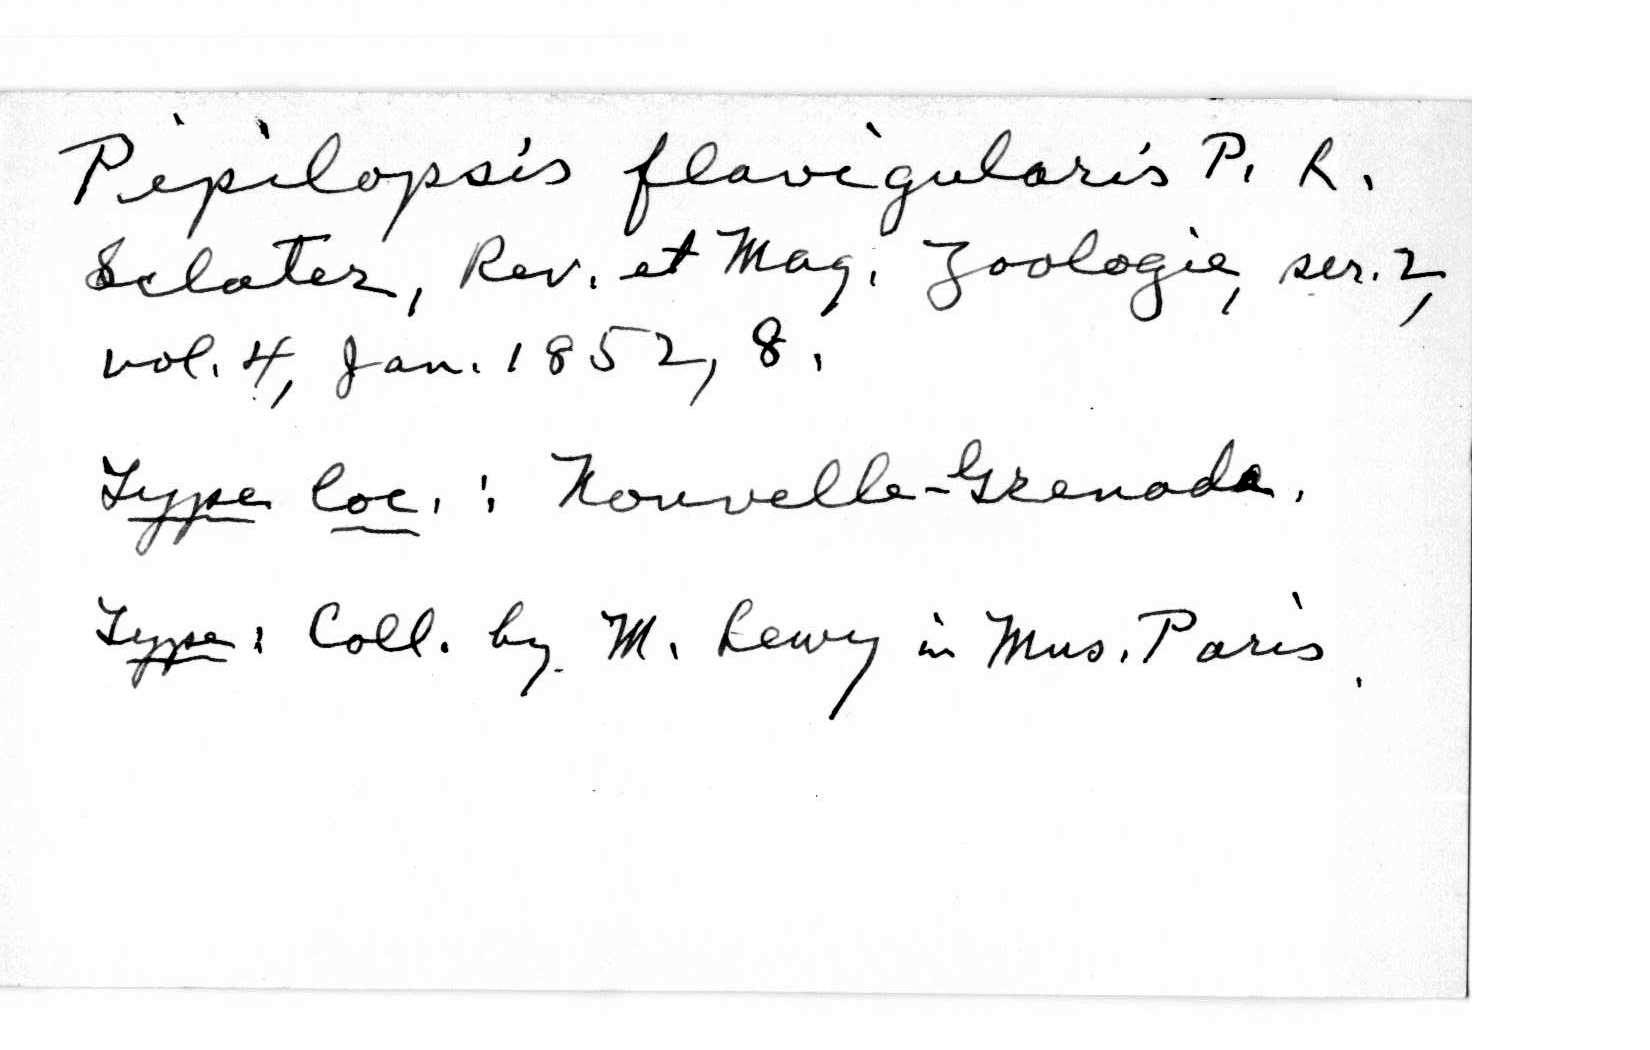 Pipilopsis flavigularis P. L.
Sclater, Rev. et Mag. Zoologie, ser. 2,
vol. 4, Jan. 1852, 8.
Type loc.: Nouvelle-Grenade.
Type: Coll. by M. Lewy in Mus. Paris.